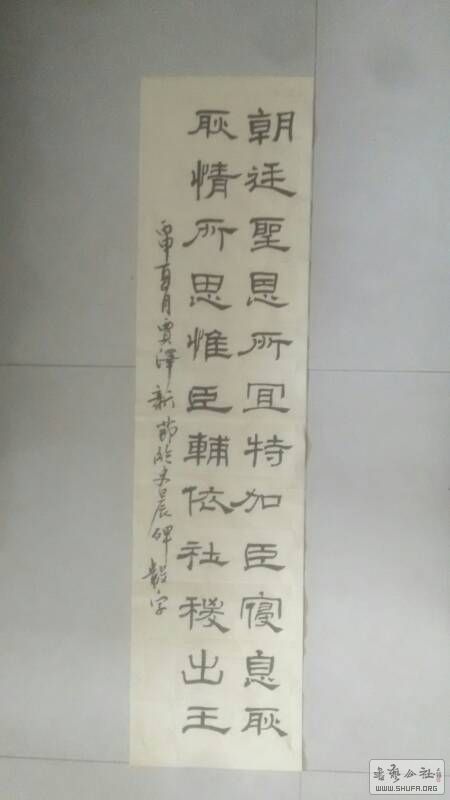 朝廷聖恩所宜特加臣寑息耿
耿情所思惟臣輔依社稷出王
丙申夏月賈澤新節臨史晨碑數字
书艺公社
WWW.SHUFA.ORG